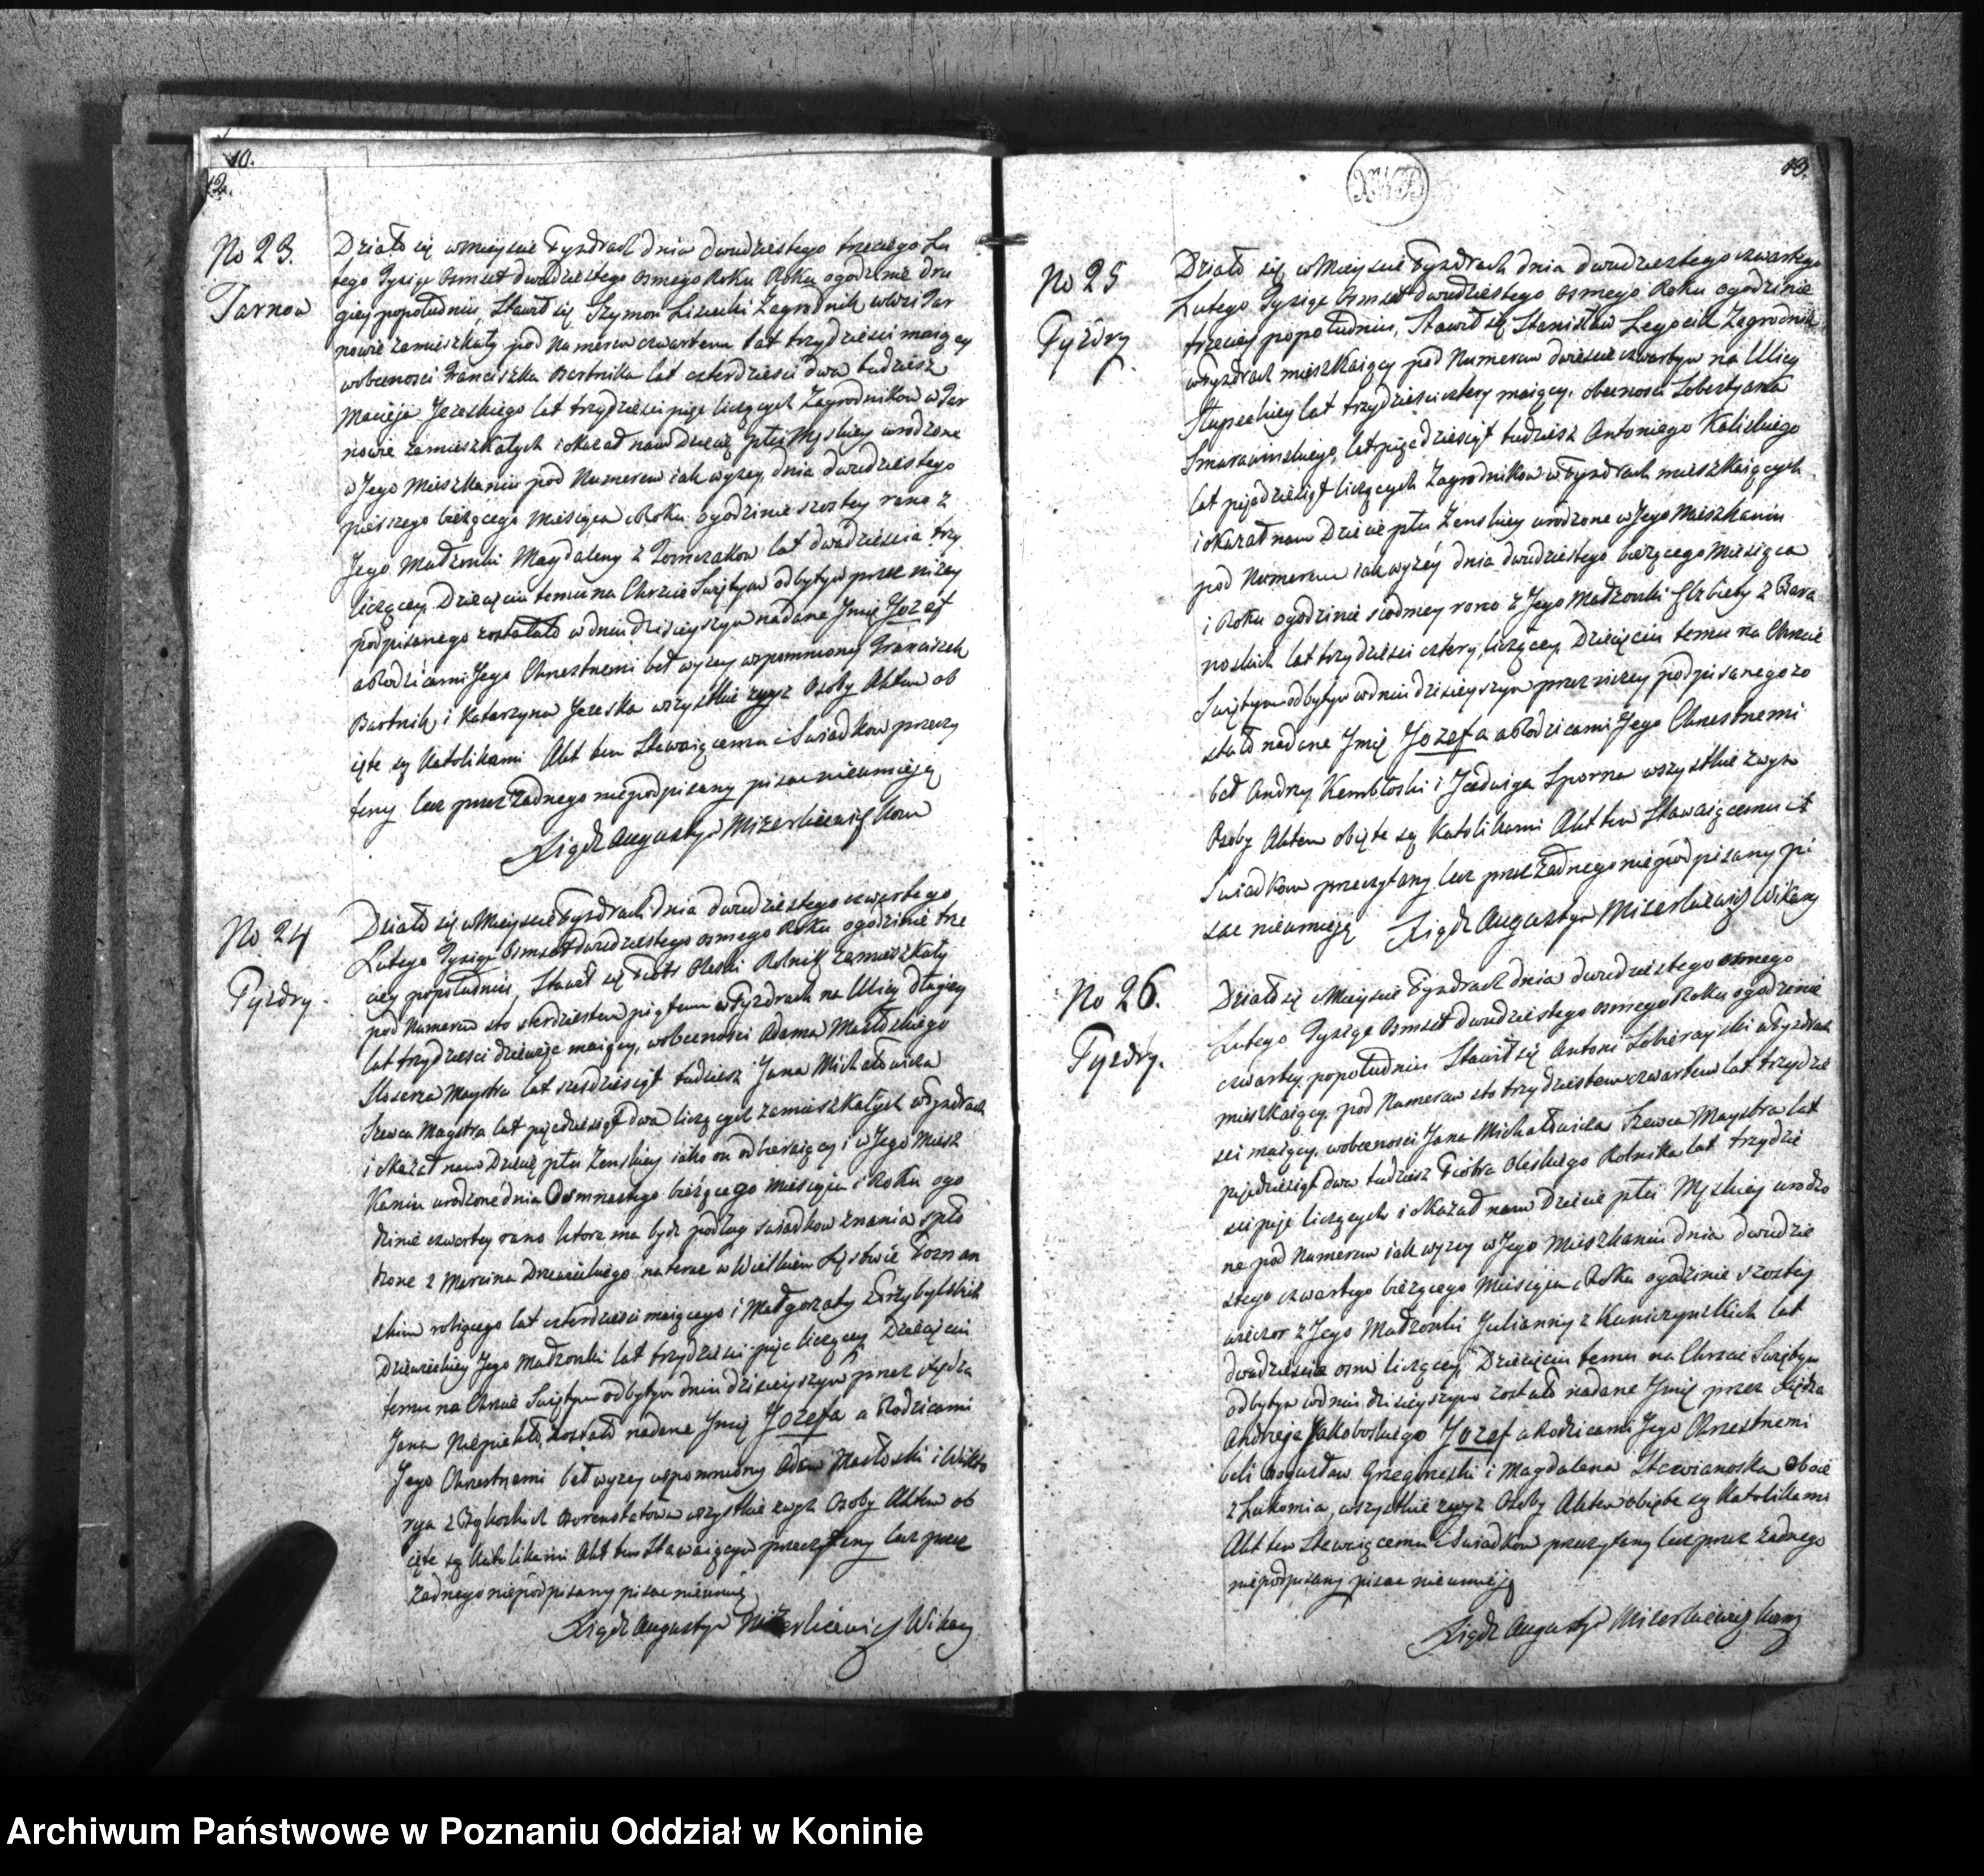 10.
12.
No 23.
Tarnow
Działo się w Mieyscie Pyzdrach dnia dwudziestego trzeciego Lu
tego Tysiąc Osmset dwudziestego osmego Roku Roku ogodzinie dru
giey popołudniu, Stawił się Szymon Zagrodnik wWsi Tar
nowie zamieszkały pod Numerem czwartem lat trzydziesci maiący
wobecnosci Franciszka Bartnika lat czterdziesci dwa tudziesz
Macieja Jezeskiego lat trzydziesci pięc liczących Zagrodnikow w Tar
nowie zamieszkałych i okazał nam Dziecię płci Męskiey urodzone
w Jego Mieszkaniu pod Numerem iak wyzey, dnia dwudziestego
pierszego bieżącego Miesiąca i Roku ogodzinie szostey rano z
Jego Małżonki Magdaleny z Tomczakow lat dwadziescia trzy
liczącey. Dziecięciu temu na Chrzcie Swiętym odbytym przez nizey
podpisanego zostało w dniu dzisieyszym nadane Jmię Jozef
a Rodzicami Jego Chrzestnemi beł wyzey wspomniony Franciszek
Bartnik i Katarzyna Jezeska wszystkie zwyz Osoby Aktem ob
ięte są Katolikami Akt ten Stawaiącemu i Swiadkow przeczy
tany lecz przez Żadnego niepodpisany pisac nieumieją
Xiądz Augustyn Mizerkiewicz Kom
No 24
Pyzdry.
Działo się w Mieyscie Pyzdrach dnia dwudziestego czwartego
Lutego Tysiąc Osmset dwudziestego osmego Roku ogodzinie trze
ciey popołudniu, Stawił się Piotr Oleski Rolnik zamieszkały
pod Numerem sto sterdziestem piątem w Pyzdrach na Ulicy długiey
lat trzydziesci dziewięc maiący, wobecnosci Adama Masłoskiego
Slosarza Maystra lat szesdziesiąt tudziesz Jana Michałowicza
Szewca Maystra lat pięcdziesiąt dwa liczących zamieszkałych w Pyzdrach
i okazał nam Dziecię płci Zenskiey iako on odbieraiący i w Jego Miesz
kaniu urodzone dnia Osmnastego bieżącego Miesiąca i Roku ogo
dzinie czwartey rano ktore ma bydz podług swiadkow znania spło
dzone z Marcina Drzewieckiego na teraz w Wielkiem Xięstwie Poznan
skim robiącego lat czterdziesci maiącego i Małgorzaty z Przybylskich
Drzewieckiey Jego Małżonki lat trzydziesci pięc liczącey Dziecięciu
temu na Chrzcie Swiętym odbytym dniu dzisieyszym przez Xiędza
Jana zostało nadane Jmię Jozefa a Rodzicami
Jego Chrzestnemi beł wyzey wspomniony Adam Masłoski i Wikto
rya z wszystkie zwyz Osoby Aktem ob
ięte są Katolikami Akt ten Stawaiącym przeczytany lecz przez
Żadnego niepodpisany pisac nieumią
Xiądz Augustyn Mizerkiewicz Wikary
13.
No 25
Pyzdry
Działo się w Mieyscie Pyzdrach dnia dwudziestego czwartego
Lutego Tysiąc Osmset dwudziestego osmego Roku ogodzinie
trzeciey popołudniu, Stawił się Stanisław Zagrodnik
w Pyzdrach mieszkaiący pod Numerem dwiescie czwartym na Ulicy
Słupeckiey lat trzydziesci cztery maiący, obecnosci Sobestyana
lat pięcdziesiąt tudziesz Antoniego Kaliskiego
lat pięcdziesiąt liczących Zagrodnikow w Pyzdrach mieszkaiących
i okazał nam Dziecie płci Zenskiey urodzone w Jego Mieszkaniu
pod Numerem iak wyzey dnia dwudziestego bieżącego Miesiąca
i Roku ogodzinie siodmey rano z Jego Małżonki Elzbiety z Bara
noskich lat trzydziesci cztery liczącey. Dziecięciu temu na Chrzcie
Swiętym odbytym w dniu dzisieyszym przez nizey podpisanego zo
stało nadane Jmię Jozefa a Rodzicami Jego Chrzestnemi
beł Andrzy Kembłoski i Jadwiga Sporna wszystkie zwyz
Osoby Aktem obięte są Katolikami Akt ten Stawaiącemu i
Swiadkow przeczytany lecz przez Żadnego niepodpisany pi
sac nieumieją Xiądz Augustyn Mizerkiewicz Wikary
No 26.
Pyzdry.
Działo się w Mieyscie Pyzdrach dnia dwudziestego osmego
Lutego Tysiąc Osmset dwudziestego osmego Roku ogodzinie
czwartey popołudniu Stawił się Antoni w Pyzdrach
mieszkaiący, pod Numerem sto trzydziestem czwartem lat trzydzie
sci maiący, wobecnosci Jana Michałowicza Szewca Maystra lat
pięcdziesiąt dwa tudziesz Piotra Oleskiego Rolnika lat trzydzie
sci pięc liczących i okazał nam Dziecie płci Męskiey urodzo
ne pod Numerem iak wyzey w Jego Mieszkaniu dnia dwudzie
stego czwartego bieżącego Miesiąca i Roku ogodzinie szostey
wieczor z Jego Małżonki Julianny z lat
dwadziescia osm liczącey, Dziecięciu temu na Chrzcie Swiętym
odbytym w dniu dzisieyszym zostało nadane Jmię przez Xiędza
Andrzeja Jakoboskiego Jozef a Rodzicami Jego Chrzestnemi
beli Bogusław i Magdalena oboie
z Łukomia, wszystkie zwyz Osoby Aktem obięte są Katolikami
Akt ten Stawaiącemu i Swiadkow przeczytany lecz przez Żadnego
niepodpisany pisac nieumieją
Xiądz Augustyn Mizerkiewicz Kom
Archiwum Państwowe w Poznaniu Oddział w Koninie